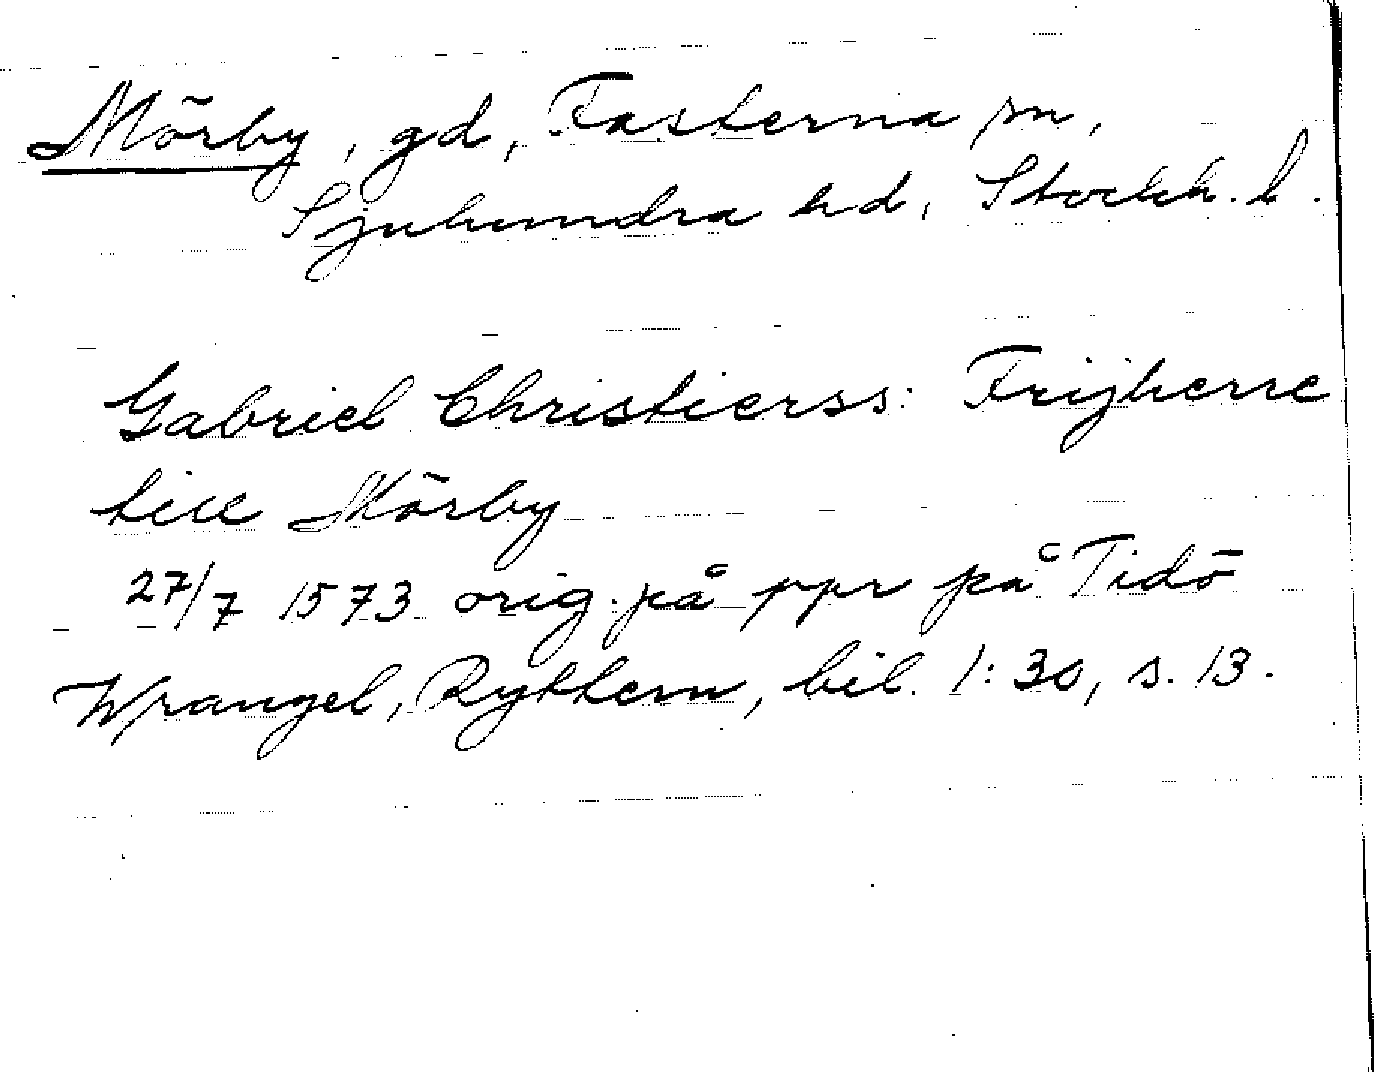 Mörby, gd, Fasterna sn,
Sjuhundra hd, Stockh. l.
Gabriel Christierss: Frijherre
till Mörby
27/7 1573 orig. på ppr på Tidö
Wrangel, Ryttern, bil. 1:30, s. 13.